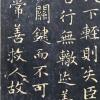 下輕則失臣
善行無轍迹
關鍵而不可
常善救人故